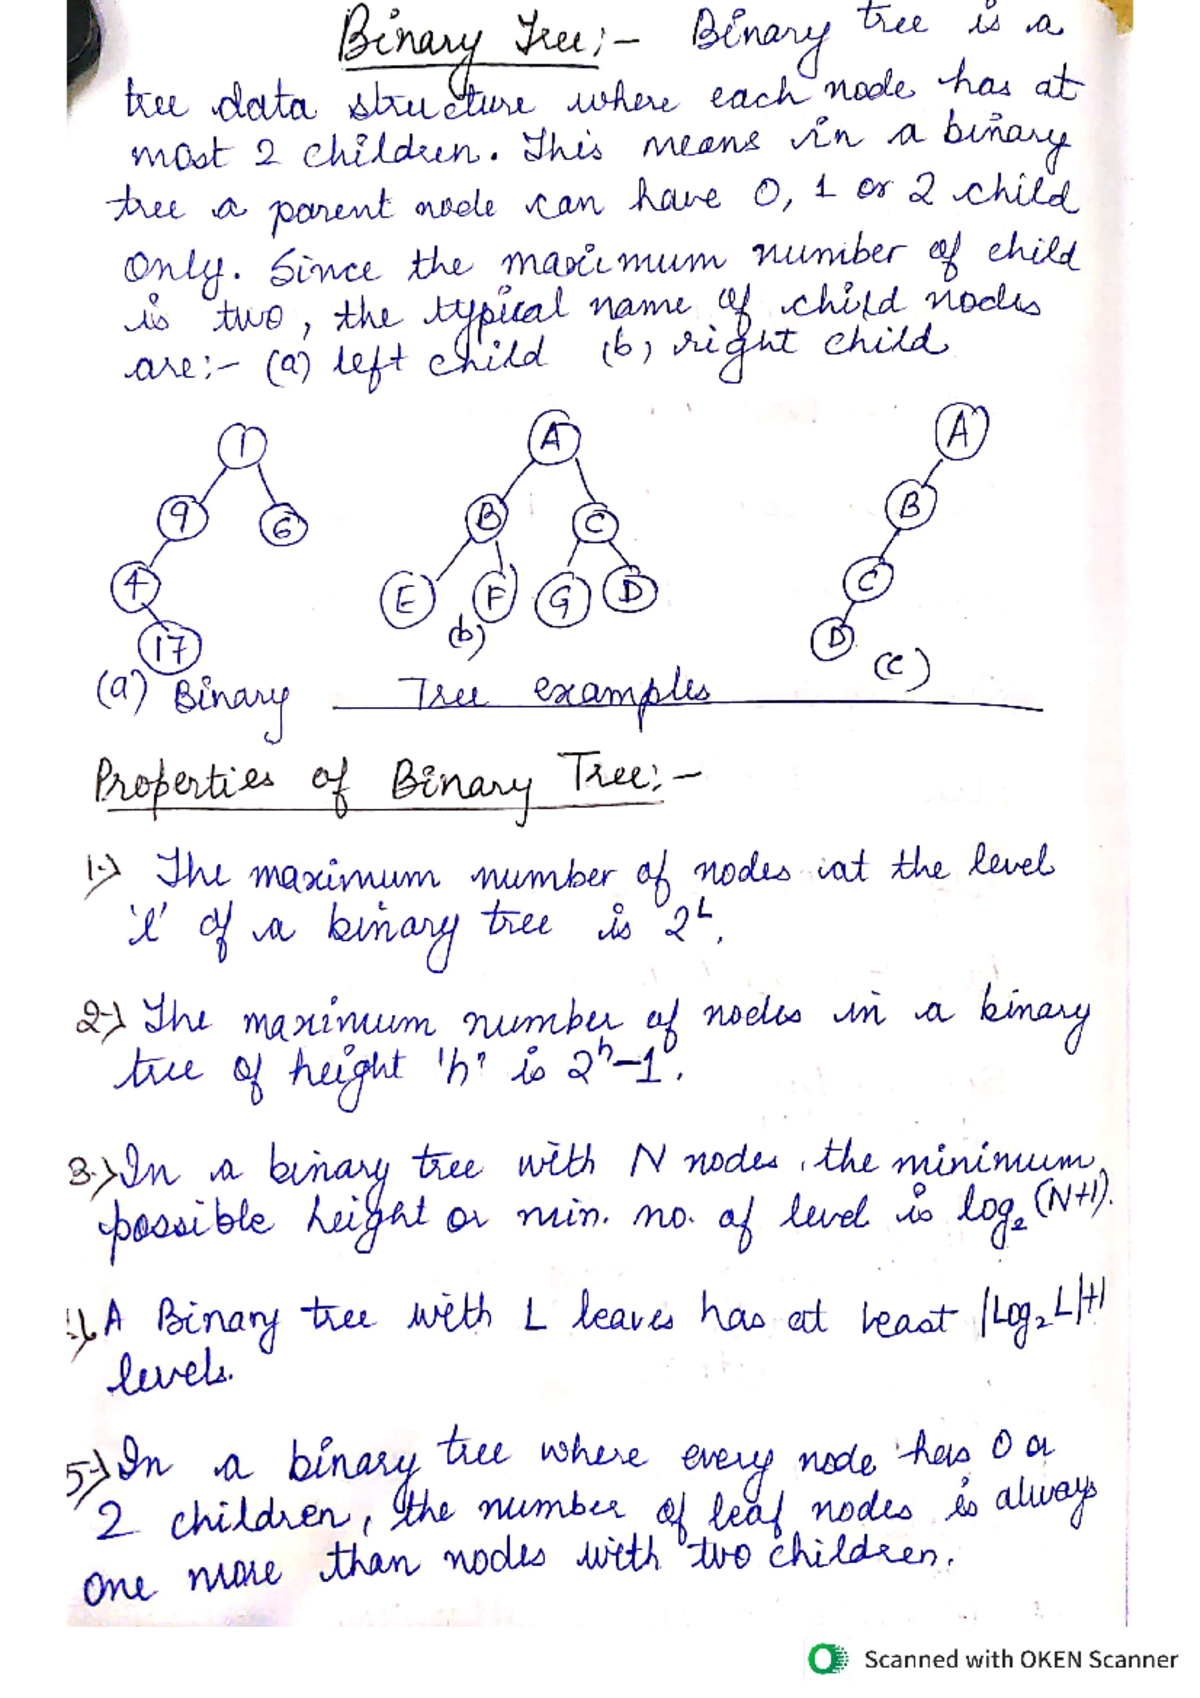 Binary Tree:- Binary tree is a
tree data structure where each node has at
most 2 children. This means in a binary
tree a parent node can have 0, 1 or 2 child
only. Since the maximum number of child
is two, the typical name of child nodes
are:- (a) left child (b) right child
1 A A
9 6 B C B
4 E F G D C
17 (b) D (c)
(a) Binary Tree examples
Properties of Binary Tree:-
1.) The maximum number of nodes at the level
'l' of a binary tree is 2^L.
2.) The maximum number of nodes in a binary
tree of height 'h' is 2^h-1.
3.) In a binary tree with N nodes, the minimum
possible height or min. no. of level is log₂(N+1).
A Binary tree with L leaves has at least |Log₂L|+1
levels.
5.) In a binary tree where every node has 0 or
2 children, the number of leaf nodes is always
one more than nodes with two children.
Scanned with OKEN Scanner